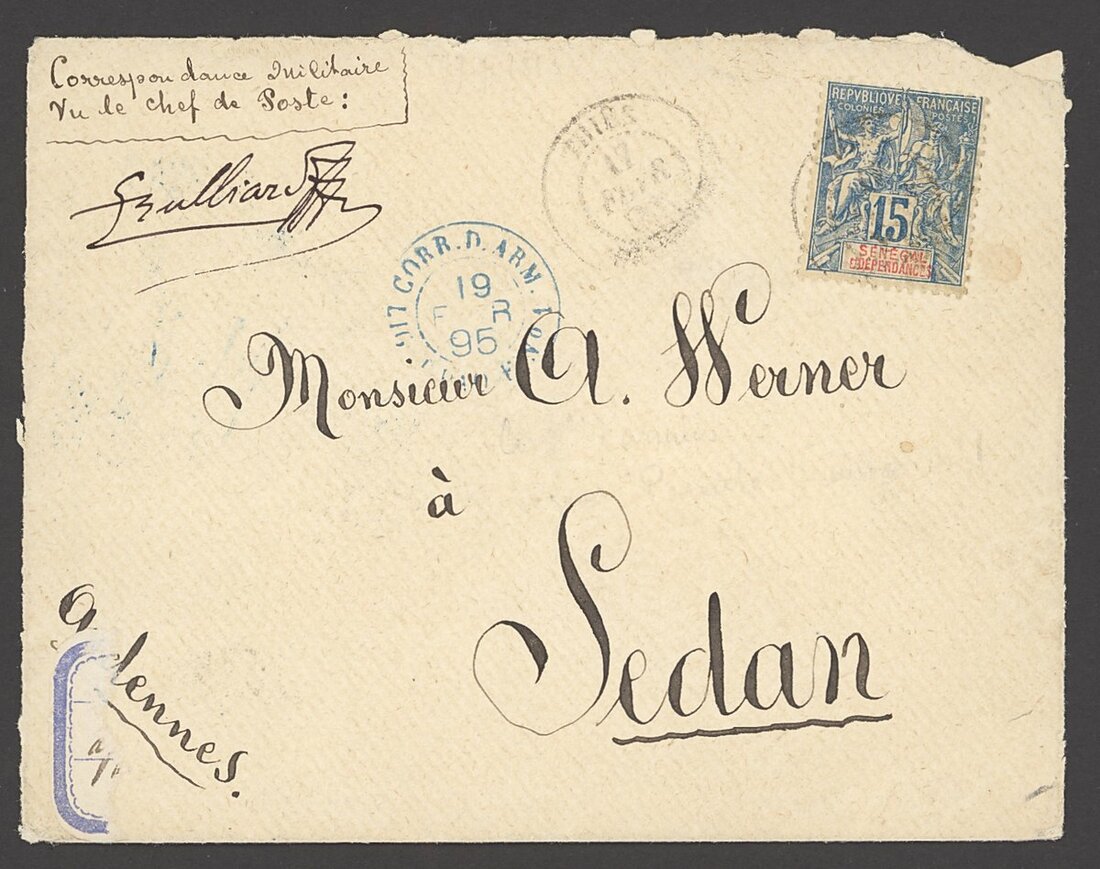 Correspondance Militaire
Vu le chef de Poste:
THIES
17
REPVBLIQVE FRANÇAISE
COLONIES POSTES
15
SENEGAL
ET DÉPENDANCES
LIG CORR. D. ARM.
19
95
Monsieur A. Werner
à
Sedan